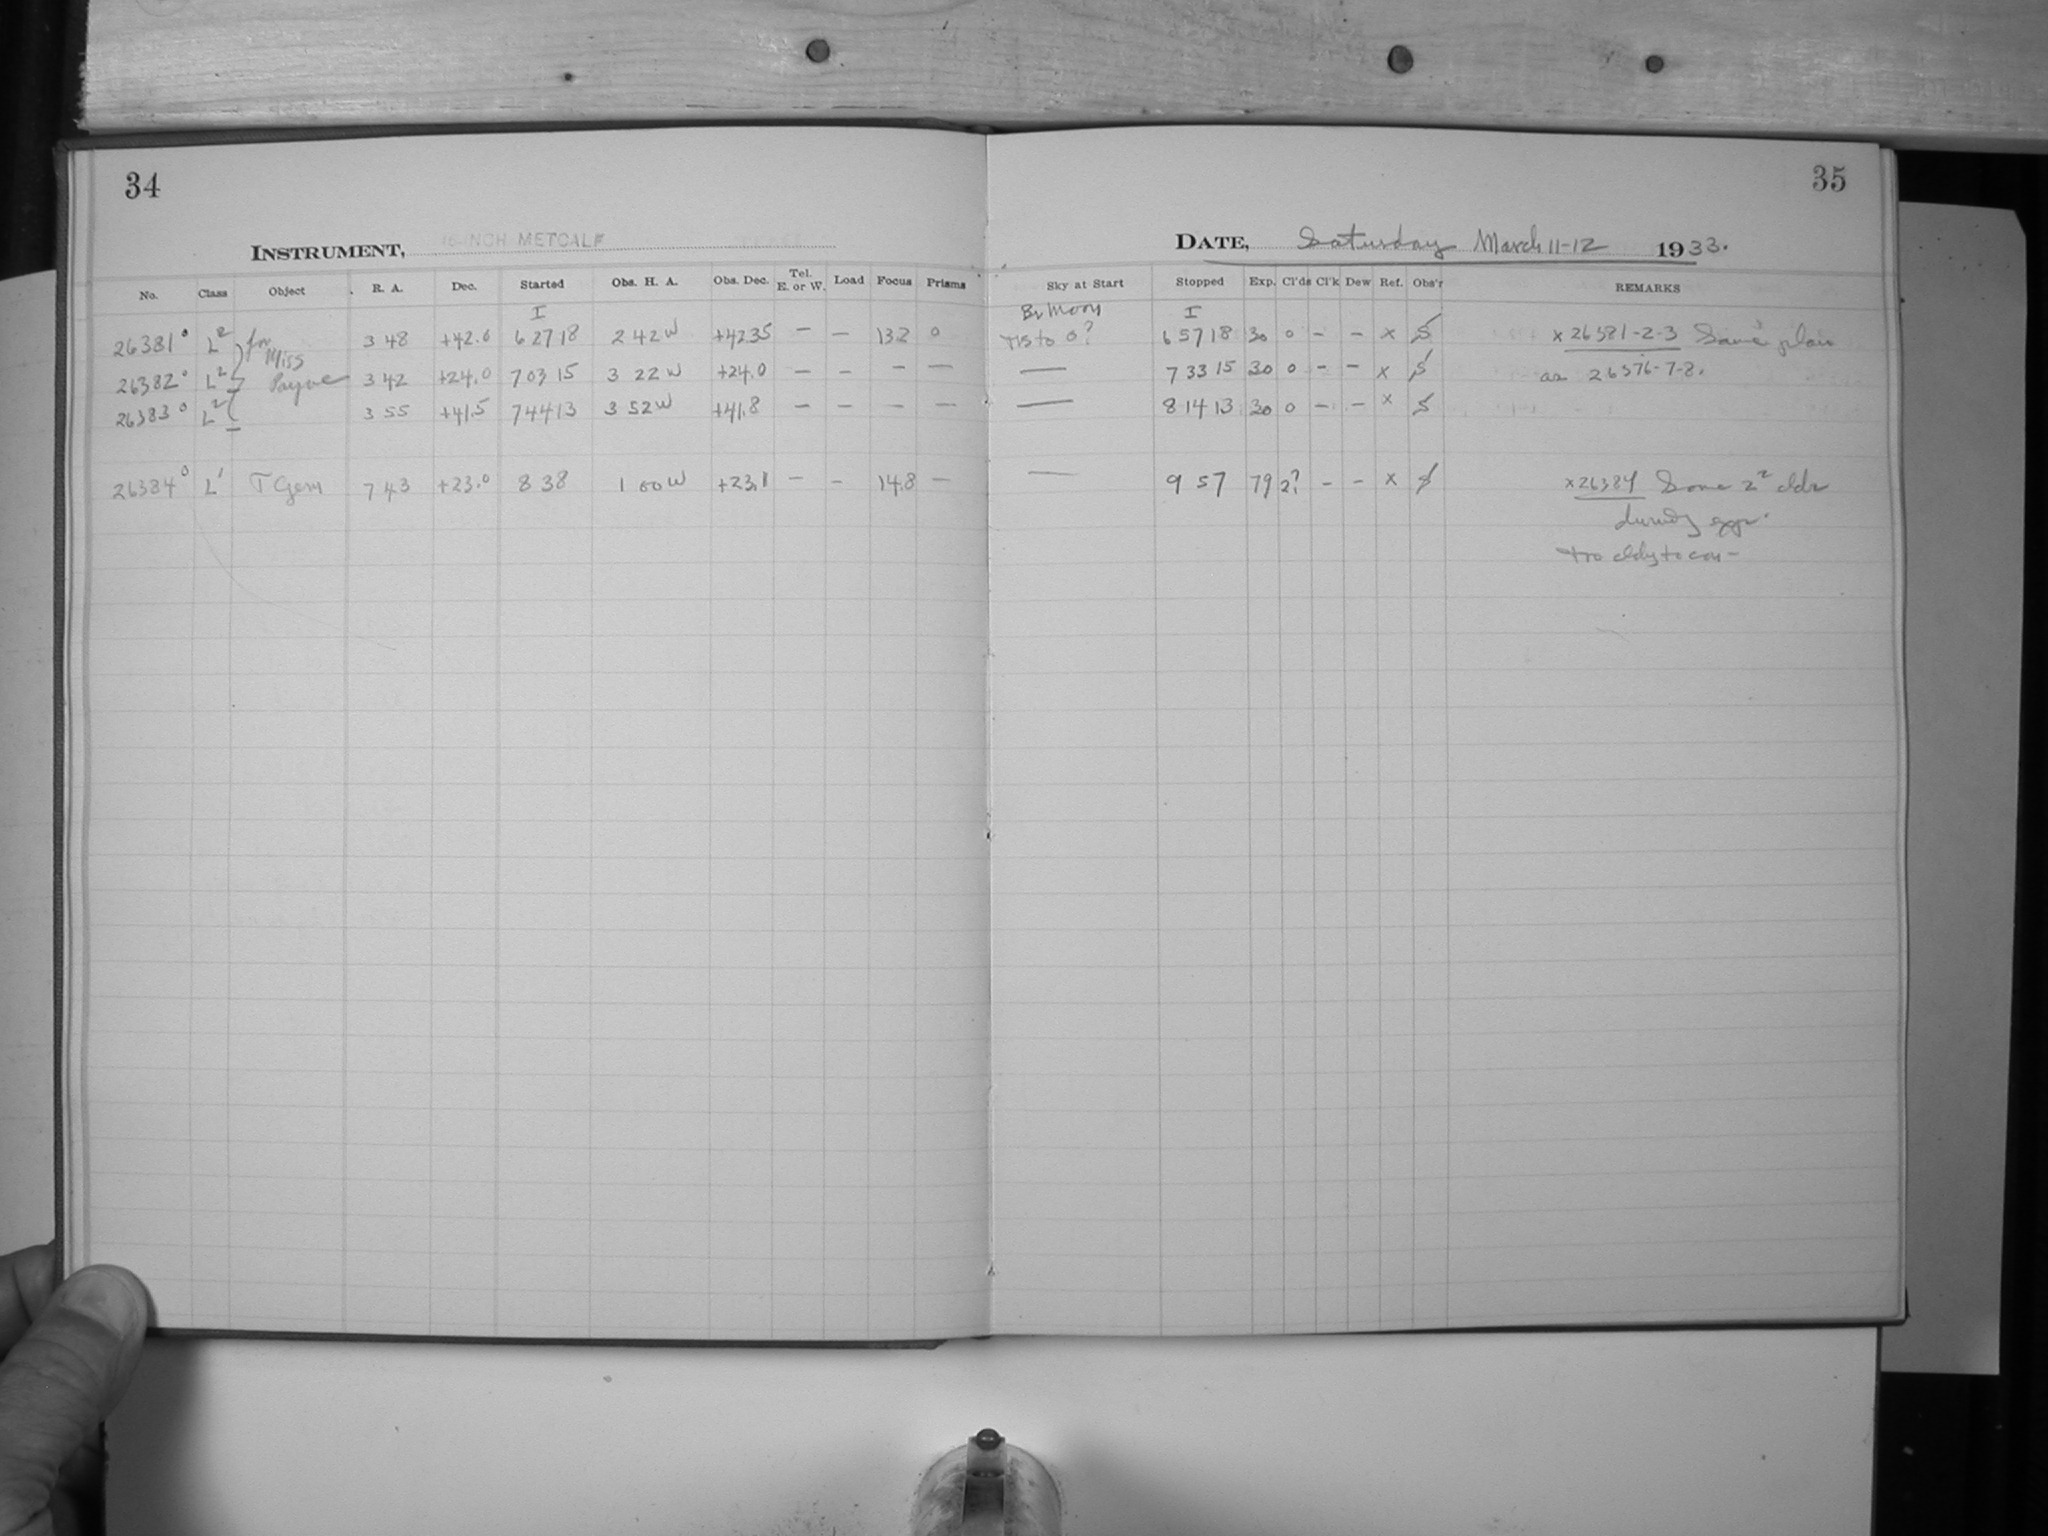 34
35
INSTRUMENT, 16-INCH METCALF
DATE, Saturday March 11-12 1933.
No. Class Object R. A. Dec. Started Obs. H. A. Obs. Dec. Tel. E. or W. Load Focus Prisms Sky at Start Stopped Exp. Cl'ds Cl'k Dew Ref. Obs'r REMARKS
I Br Moon I
26381° L² for 3 48 +42.0 6 27 18 2 42 W +42.35 — — 13.2 0 to 0? 6 57 18 30 0 – – x S x 26381-2-3 Same plan
Miss
26382° L² Payne 3 42 +24.0 7 03 15 3 22 W +24.0 — — — — — 7 33 15 30 0 – – x S as 26376-7-8.
26383° L² 3 55 +41.5 7 44 13 3 52 W +41.8 — — — — — 8 14 13 30 0 – – x S
26384° L' T Gem 7 43 +23.0 8 38 1 00 W +23.1 — — 14.8 — — 9 57 79 2? – – x S x 26384 Some 2² clds
during exp.
too cldy to con –